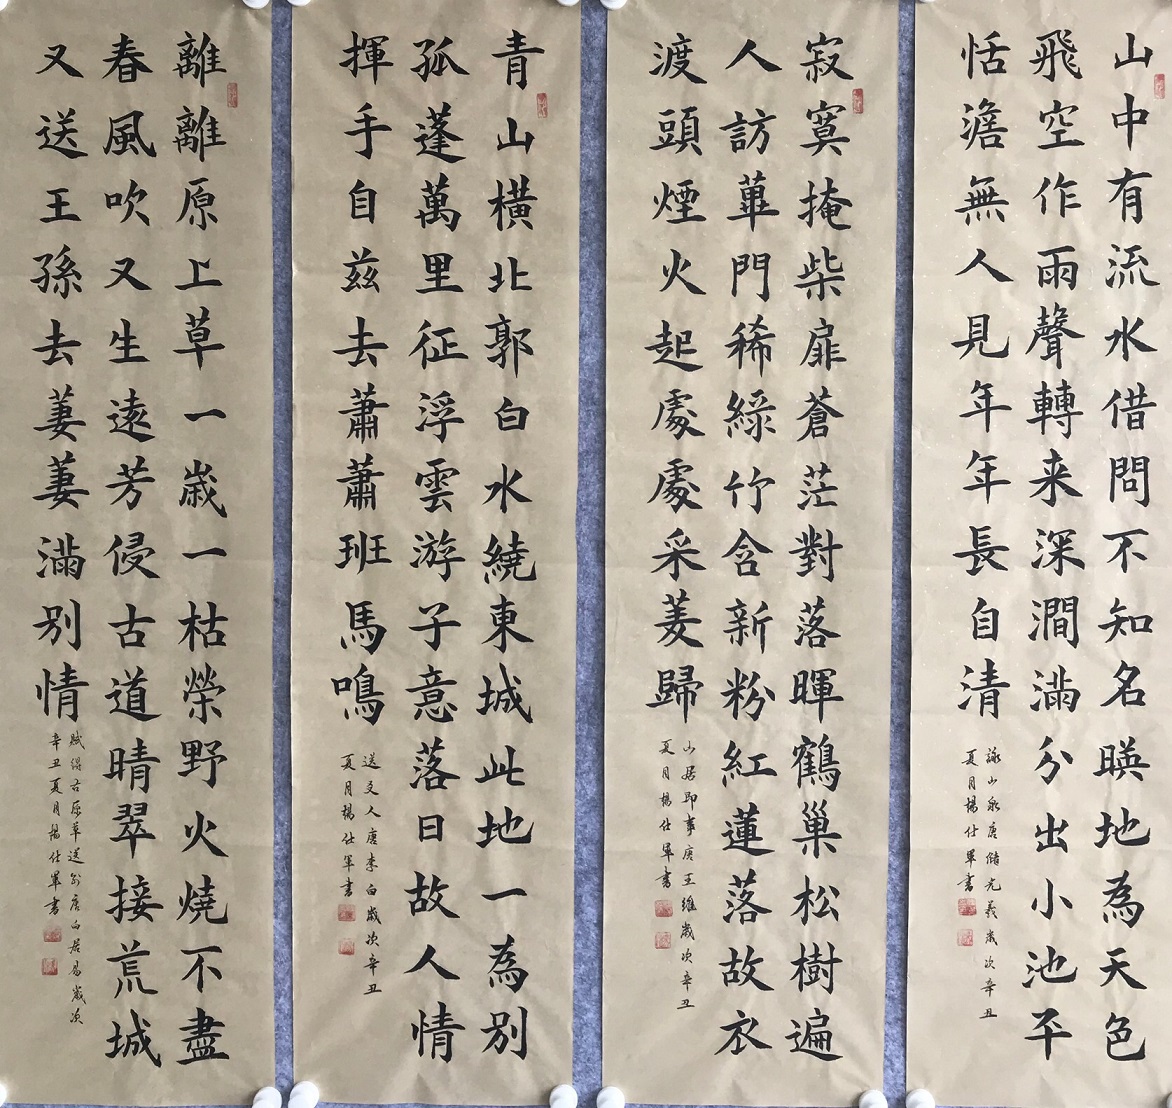 山中有流水借問不知名暎地為天色
飛空作雨聲轉来深澗滿分出小池平
恬澹無人見年年長自清
詠山泉唐儲光羲歲次辛丑
夏月楊仕軍書
寂寞掩柴扉蒼茫對落暉鶴巢松樹遍
人訪蓽門稀綠竹含新粉紅蓮落故衣
渡頭煙火起處處采菱歸
山居即事唐王維歲次辛丑
夏月楊仕軍書
青山橫北郭白水繞東城此地一為別
孤蓬萬里征浮雲游子意落日故人情
揮手自茲去蕭蕭班馬鳴
送友人唐李白歲次辛丑
夏月楊仕軍書
離離原上草一歲一枯榮野火燒不盡
春風吹又生遠芳侵古道晴翠接荒城
又送王孫去萋萋滿別情
賦得古原草送別唐白居易歲次
辛丑夏月楊仕軍書